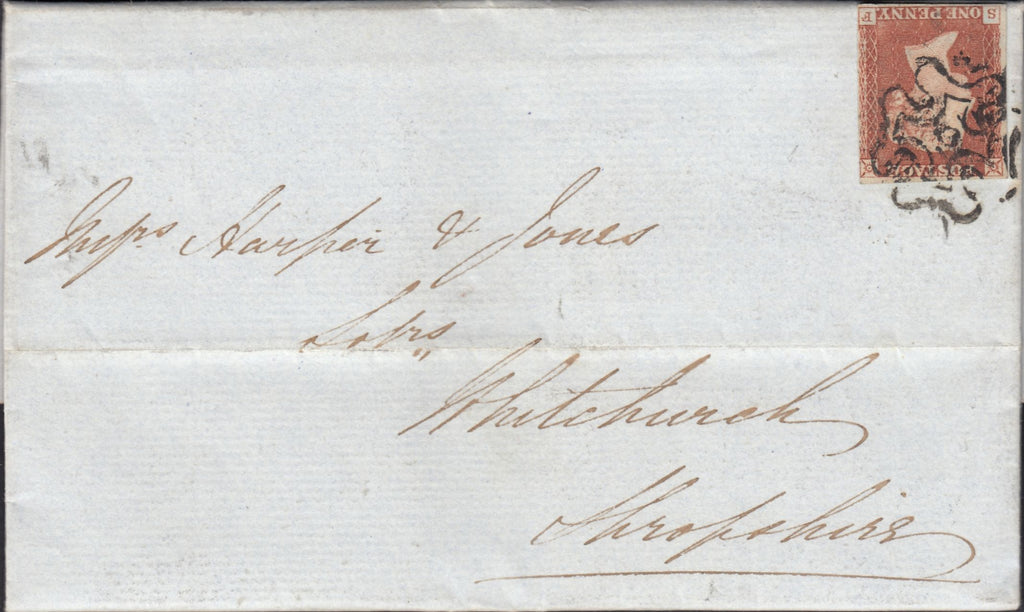 POSTAGE
S ONE PENNY F
Messrs Harper & Jones
Solrs
Whitchurch
Shropshire